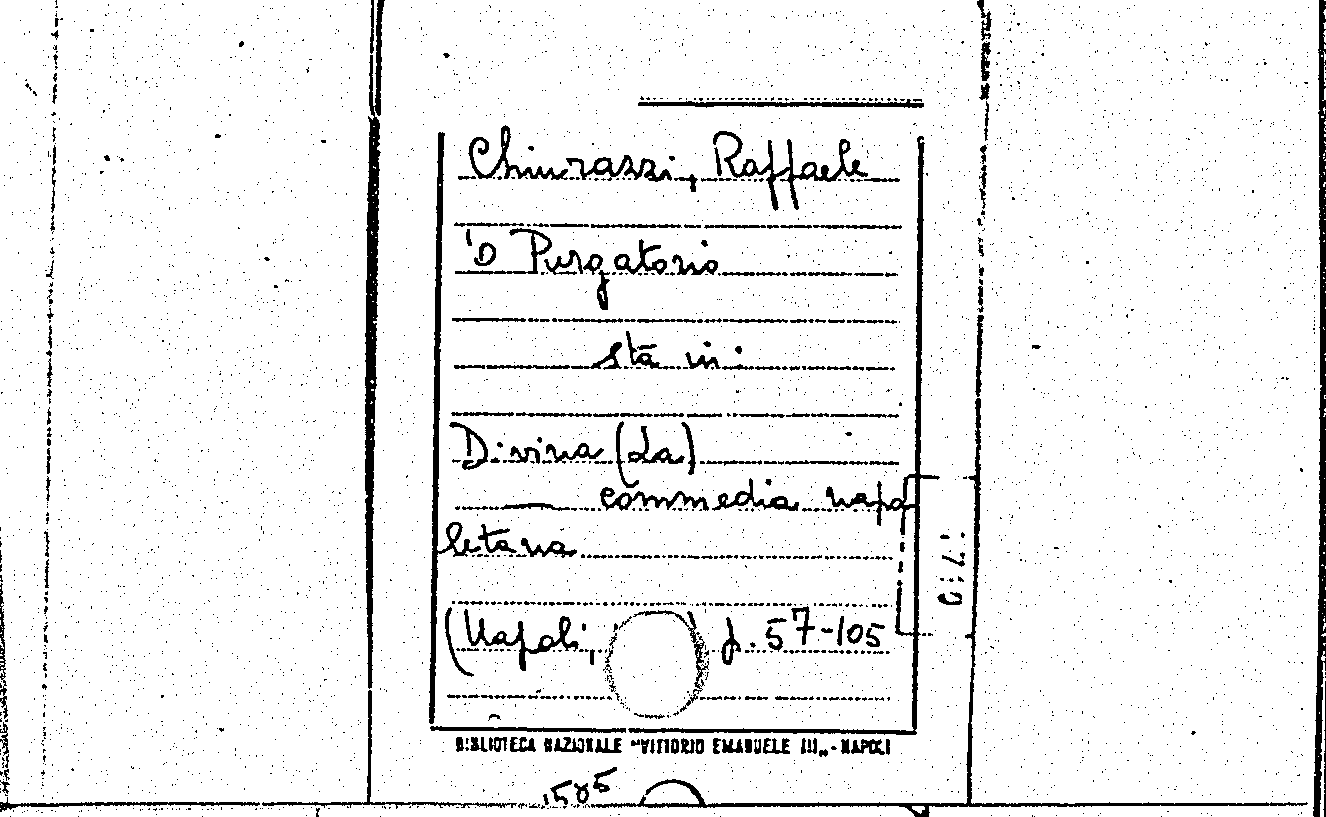 Chiurazzi, Raffaele
'O Purgatorio
sta in:
Divina (La)
commedia napo
letana
(Napoli, ) p. 57-105
BIBLIOTECA NAZIONALE "VITTORIO EMANUELE III" - NAPOLI